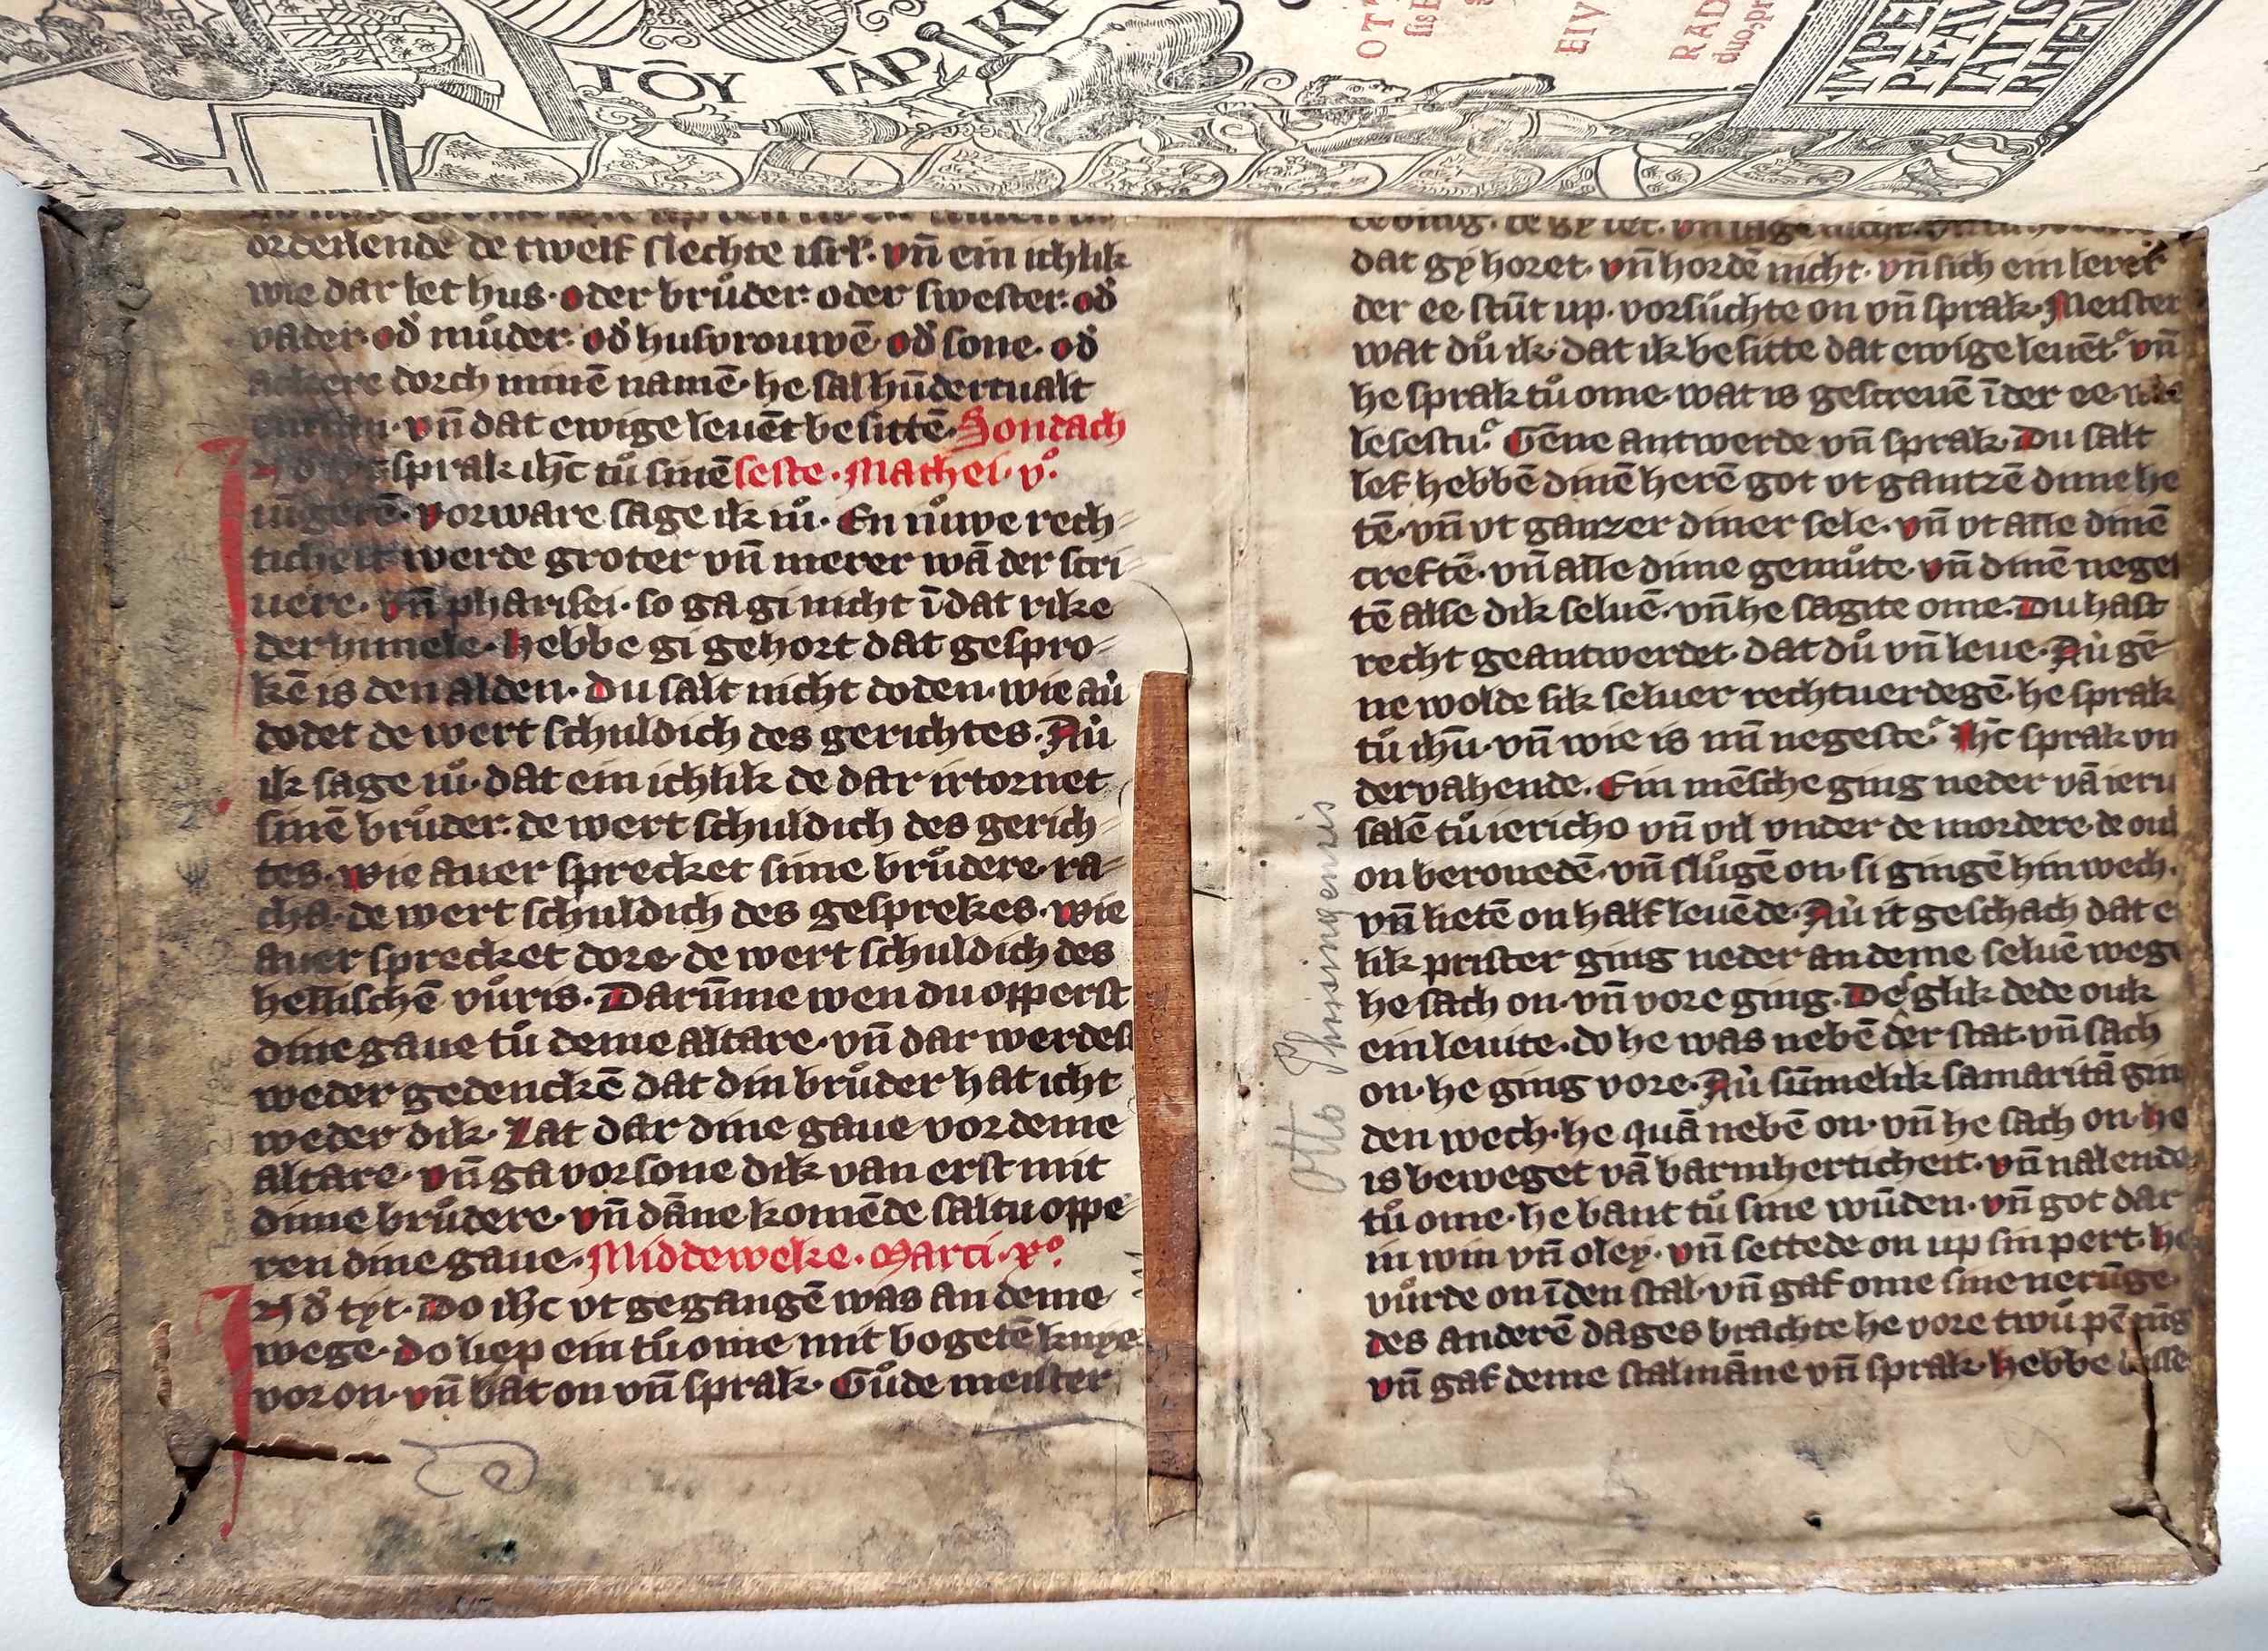 ΤΟΥ ΓᾺΡ ΚΡ
OT
EIV
RAD
duo,pr
IMPE
P·F·AV
TATIS
RHEN
ordelende de twelf slechte isrl᷎. vn̄ ein ichlik
wie dar let hus. oder brůder. oder swester. od᷎
vader. od᷎ můder. od᷎ husvrouwē. od᷎ sone. od᷎
ackere dorch minē namē. he sal hūdertualt
vn̄ dat ewige leuēt besittē. Sondach
sprak ih̄c tů sinē seste. Mathei. v°.
iūgerē. vorware sage ik iů. En nůwe rech-
ticheit werde groter vn̄ merer wā der scri-
uere. vn̄ pharisei. so ga gi nicht ī dat rike
der himele. hebbe gi gehort dat gespro-
kē is den alden. Du salt nicht doden. wie au᷎
dodet de wert schuldich des gerichtes. Au᷎
ik sage iů. dat ein ichlik de dar irtornet
sinē brůder. de wert schuldich des gerich-
tes. wie auer sprecket sime brůdere. ra-
cha. de wert schuldich des gesprekes. wie
auer sprecket dore. de wert schuldich des
hellischē vůris. Darūme wen du opperst
dine gaue tů deme altare. vn̄ dar werdest
weder gedenckē dat din brůder hat icht
weder dik. Lat dar dine gaue vor deme
altare. vn̄ ga vorsone dik van erst mit
dime brůdere. vn̄ dāne komēde saltu oppe-
ren dine gaue. Middeweke. Marci. x°.
N d᷎ tyt. Do ih̄c vt gegangē was an deme
wege. do liep ein tů ome mit bogetē knye
vor on. vn̄ bat on vn̄ sprak. Gůde meister
dat gy horet. vn̄ hordē nicht. vn̄ sich ein lerer
der ee. stůt up. vorsůchte on vn̄ sprak. Meister
wat dů ik. dat ik besitte dat ewige leuēt? vn̄
he sprak tů ome. wat is gescreuē ī der ee. wie
lesestu? Gēne antwerde vn̄ sprak. Du salt
lef hebbē dinē herē got vt gantzē dime he
tē. vn̄ vt ganzer diner sele. vn̄ vt alle dinē
creftē. vn̄ alle dime gemůte. vn̄ dinē negel
tē alse dik seluē. vn̄ he sagite ome. Du hast
recht geantwerdet. dat dů vn̄ leue. Au᷎ gē-
ne wolde sik seluer rechtuerdegē. he sprak
tů ihū. vn̄ wie is mī negeste? Ih̄c sprak vn
dervahende. Ein mēsche ging neder vā ieru
salē tů iericho vn̄ vil vnder de mordere. de ouk
on berouedē. vn̄ slůgē on. si gingē hin wech.
vn̄ lietē on half leuēde. Au᷎ it geschach dat e
lik prister ging neder an deme seluē wege
he sach on. vn̄ vore ging. Des glik dede ouk
ein leuite. do he was nebē der stat. vn̄ sach
on. he ging vore. Au᷎ sūmelik samaritā gin
den wech. he quā nebē on. vn̄ he sach on. he
is beweget vā barmherticheit. vn̄ nalende
tů ome. he bant tů sine wūden. vn̄ got dar
in win vn̄ oley. vn̄ settede on up sin pert. he
vůrde on ī den stal. vn̄ gaf ome sine nerūge.
des anderē dages brachte he vore twů pēnīg
vn̄ gaf deme stalmāne vn̄ sprak. hebbe
Otto Phrisingensis